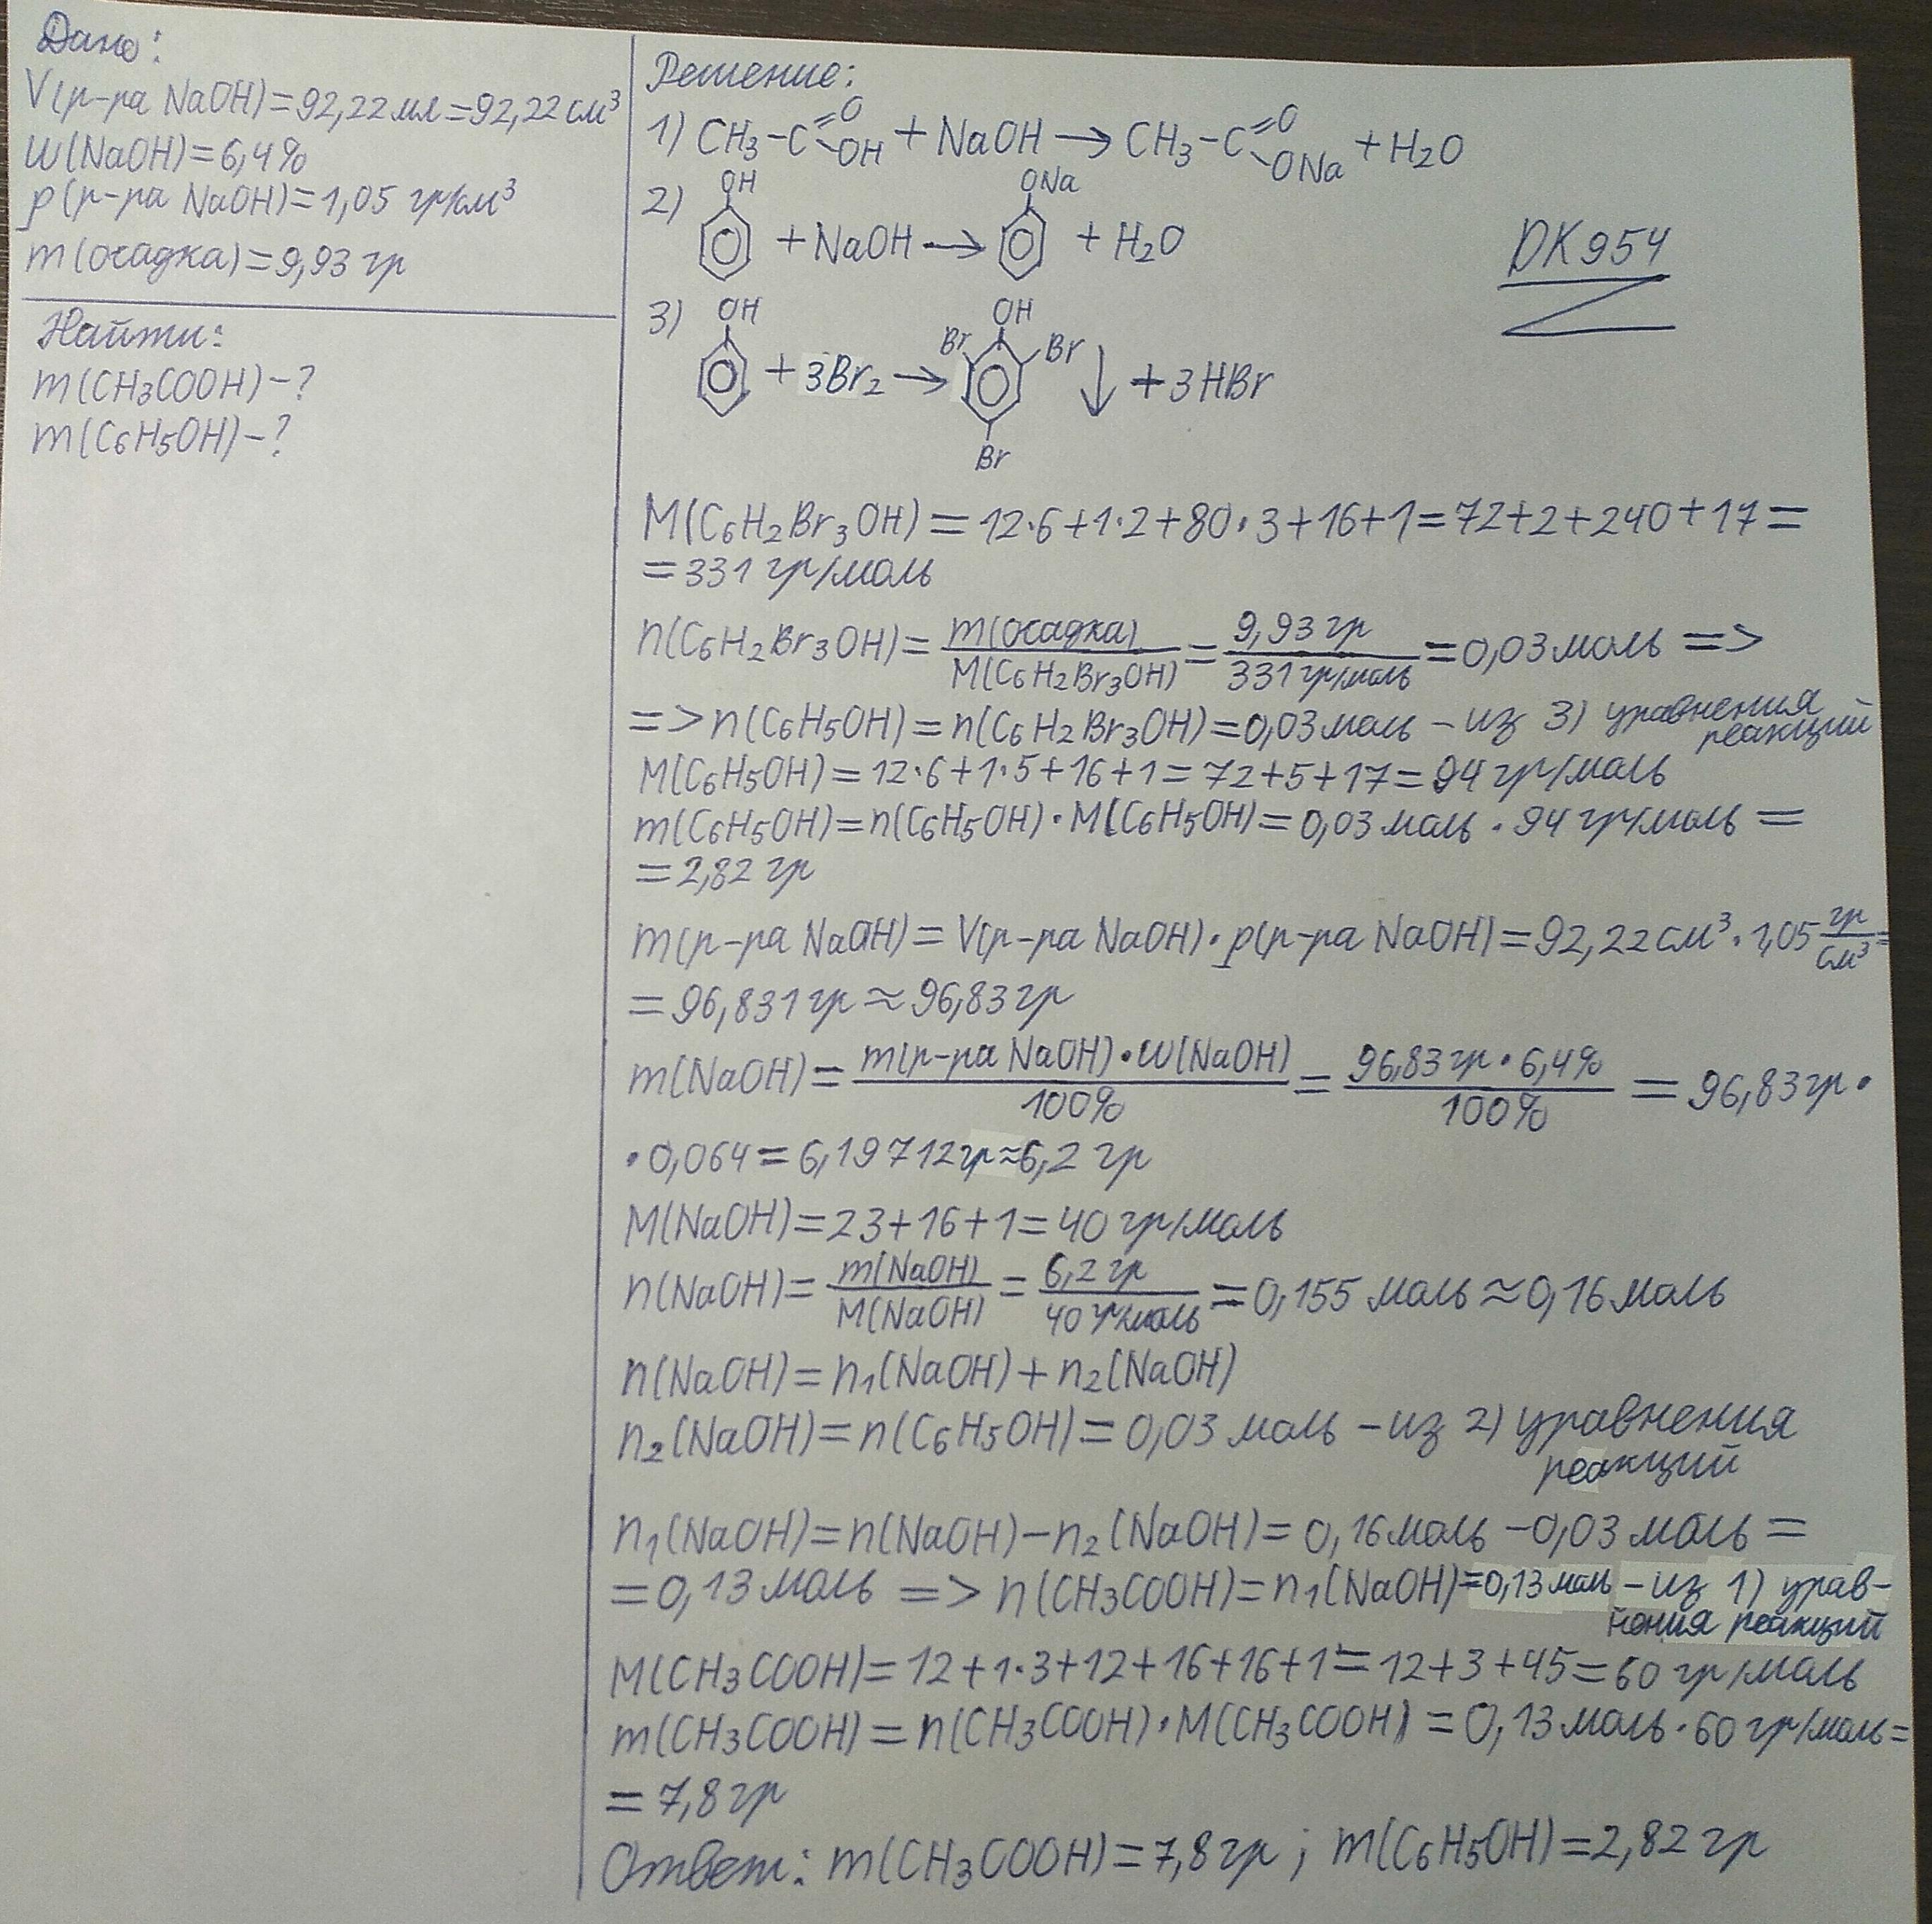 Дано:
V(р-ра NaOH)=92,22 мл=92,22 см³
w(NaOH)=6,4%
p(р-ра NaOH)=1,05 гр/см³
m(осадка)=9,93 гр
Найти:
m(CH₃COOH)-?
m(C₆H₅OH)-?
Решение:
1) CH₃-C=O-OH + NaOH → CH₃-C=O-ONa + H₂O
OH ONa
2) + NaOH → + H₂O
DK954
OH OH
3) + 3Br₂ → Br Br ↓ + 3HBr
Br
M(C₆H₂Br₃OH) = 12·6+1·2+80·3+16+1=72+2+240+17=
=331 гр/моль
n(C₆H₂Br₃OH)= m(осадка)/M(C₆H₂Br₃OH) = 9,93 гр/331 гр/моль =0,03 моль =>
=> n(C₆H₅OH)=n(C₆H₂Br₃OH)=0,03 моль - из 3) уравнения реакций
M(C₆H₅OH)=12·6+1·5+16+1=72+5+17=94 гр/моль
m(C₆H₅OH)=n(C₆H₅OH)·M(C₆H₅OH)=0,03 моль·94 гр/моль=
=2,82 гр
m(р-ра NaOH)=V(р-ра NaOH)·p(р-ра NaOH)=92,22 см³·1,05 гр/см³=
=96,831 гр≈96,83 гр
m(NaOH)= m(р-ра NaOH)·w(NaOH)/100% = 96,83 гр·6,4%/100% = 96,83 гр·
·0,064=6,19712 гр≈6,2 гр
M(NaOH)=23+16+1=40 гр/моль
n(NaOH)= m(NaOH)/M(NaOH) = 6,2 гр/40 гр/моль =0,155 моль≈0,16 моль
n(NaOH)=n₁(NaOH)+n₂(NaOH)
n₂(NaOH)=n(C₆H₅OH)=0,03 моль - из 2) уравнения
реакций
n₁(NaOH)=n(NaOH)-n₂(NaOH)=0,16 моль-0,03 моль=
=0,13 моль => n(CH₃COOH)=n₁(NaOH)=0,13 моль - из 1) урав-
нения реакций
M(CH₃COOH)=12+1·3+12+16+16+1=12+3+45=60 гр/моль
m(CH₃COOH)=n(CH₃COOH)·M(CH₃COOH)=0,13 моль·60 гр/моль=
=7,8 гр
Ответ: m(CH₃COOH)=7,8 гр; m(C₆H₅OH)=2,82 гр